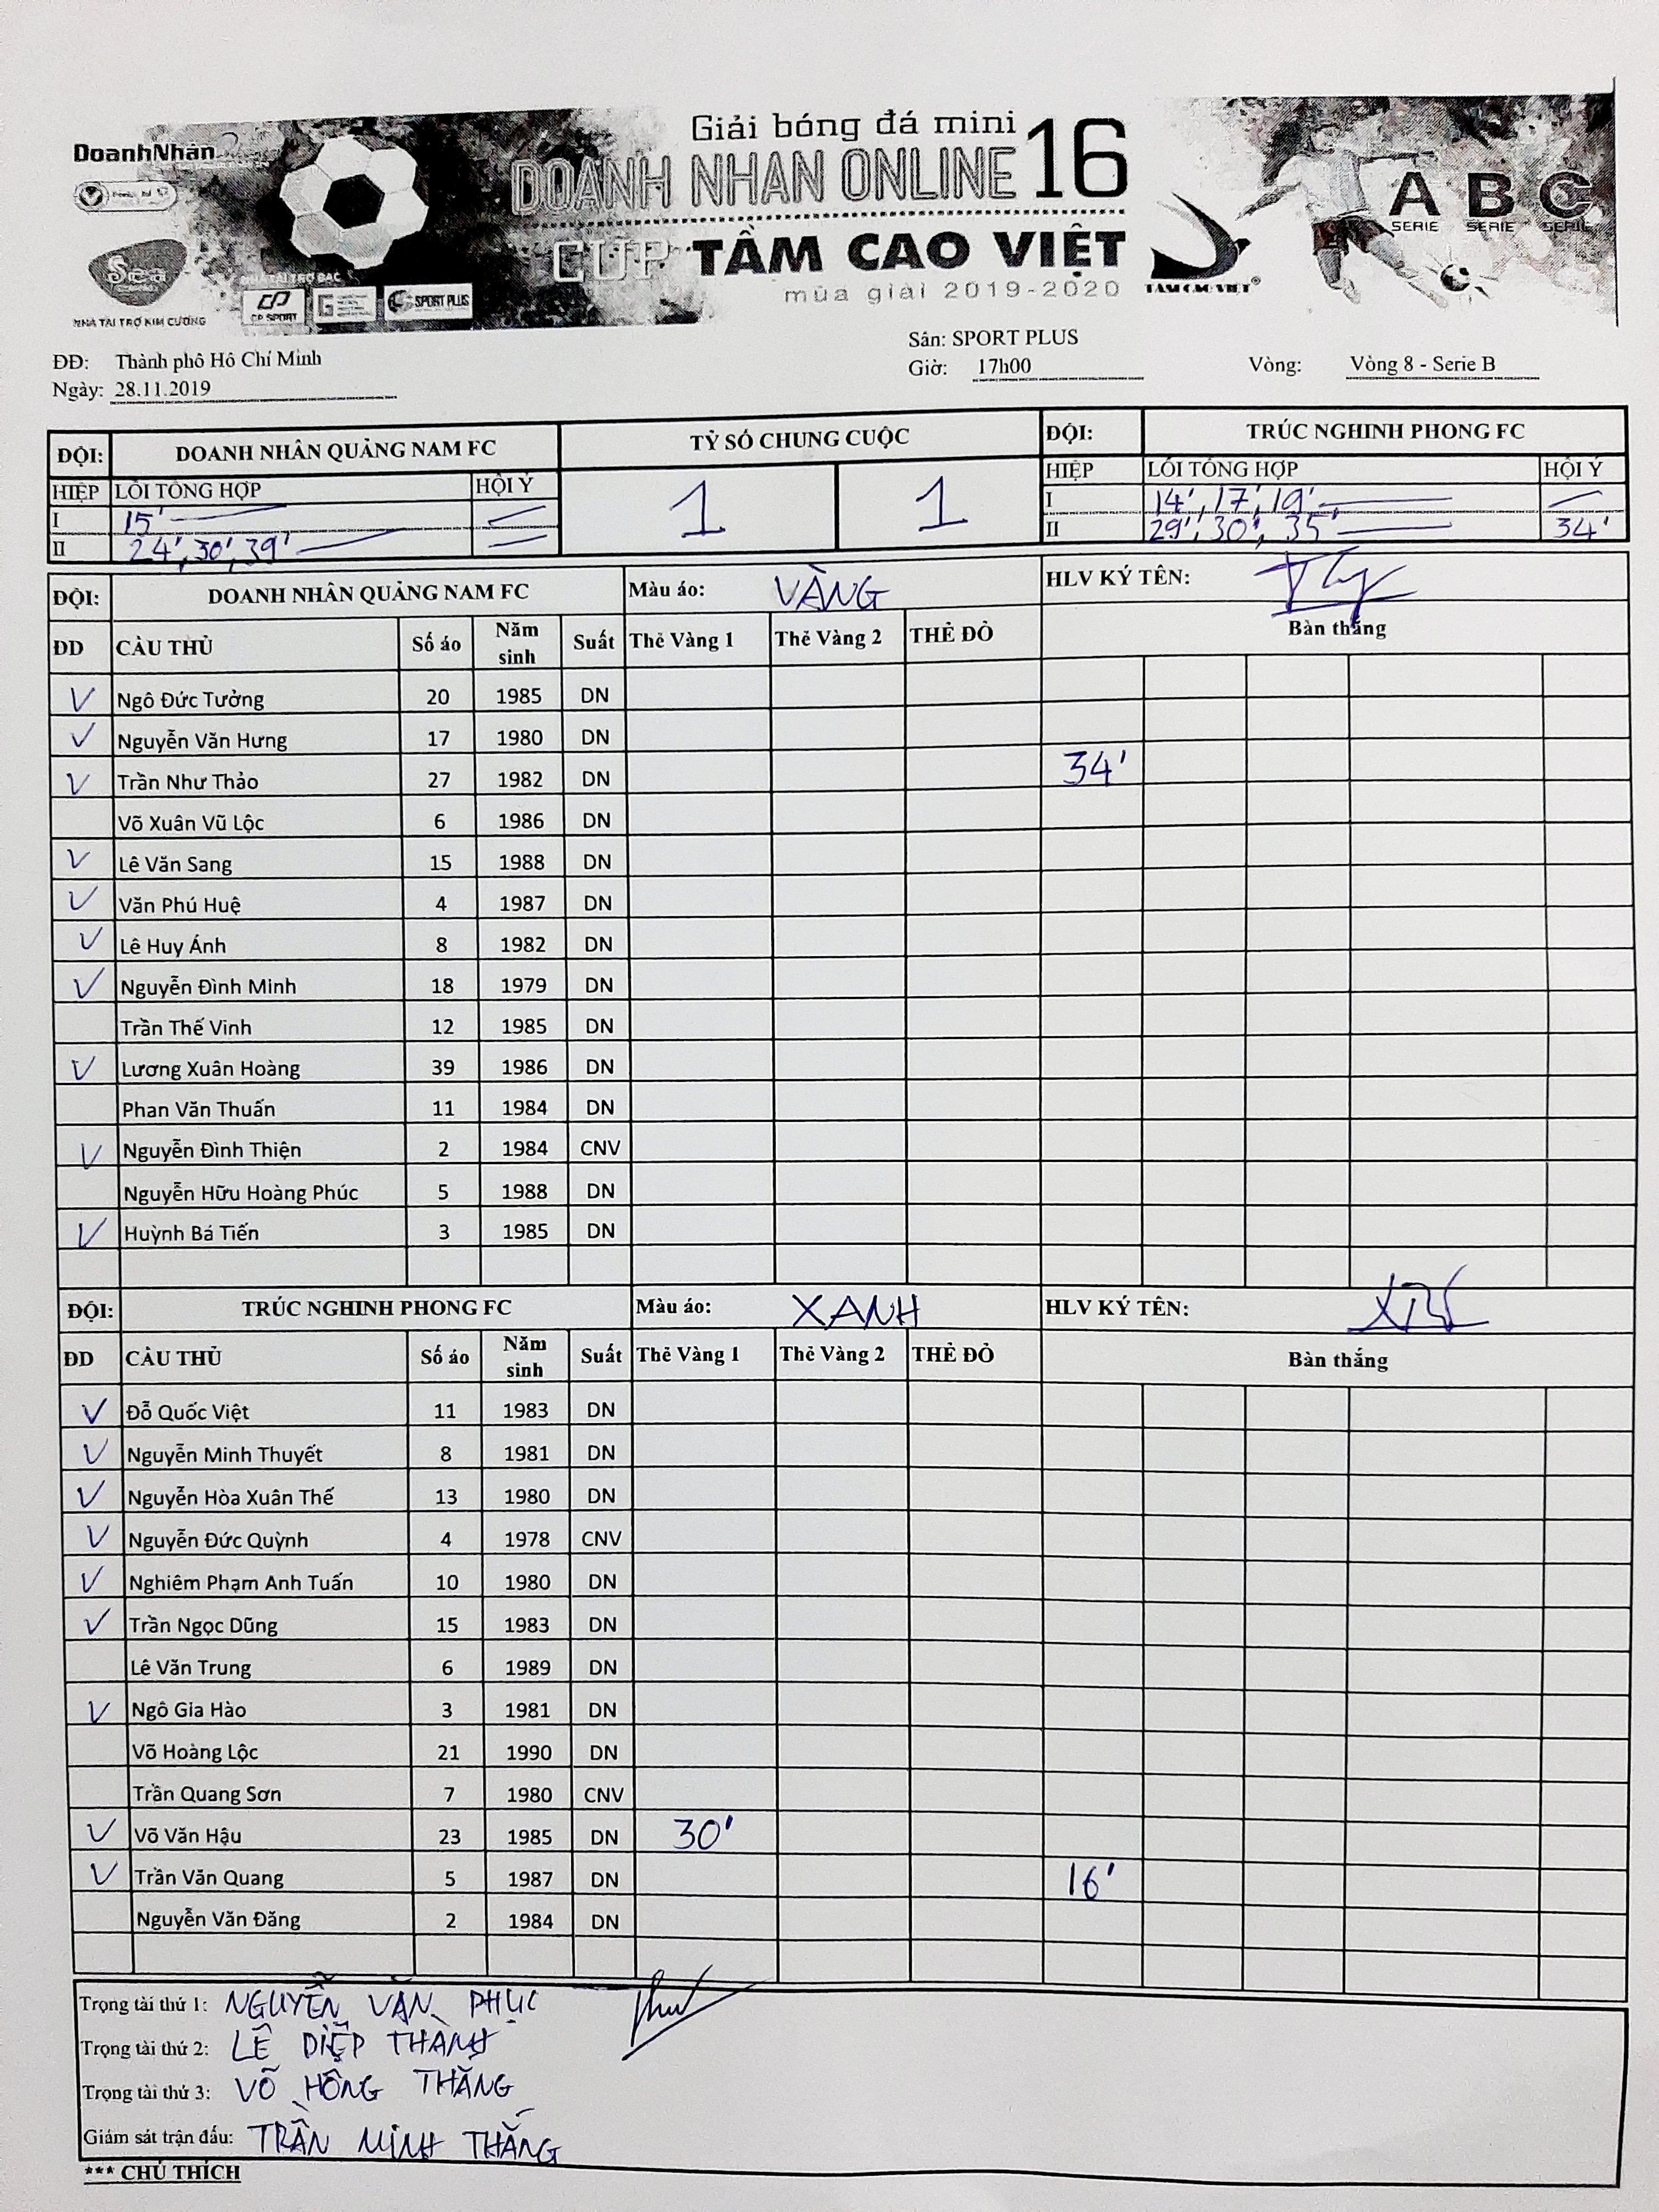 DoanhNhân
Giải bóng đá mini
DOANH NHAN ONLINE 16
CUP TẦM CAO VIỆT
mùa giải 2019-2020
A B C
SERIE SERIE SERIE
TAM CAO VIET
Sea
CP SPORT
SPORT PLUS
NHÀ TÀI TRỢ KIM CƯƠNG
NHÀ TÀI TRỢ BẠC
Sân: SPORT PLUS
ĐĐ: Thành phô Hô Chí Minh
Giờ: 17h00 Vòng: Vòng 8 - Serie B
Ngày: 28.11.2019
ĐỘI: DOANH NHÂN QUẢNG NAM FC TỶ SỐ CHUNG CUỘC ĐỘI: TRÚC NGHINH PHONG FC
HIỆP LỖI TỔNG HỢP HỘI Ý 1 1 HIỆP LỖI TỔNG HỢP HỘI Ý
I 15' I 14', 17', 19'
II 24', 30', 39' II 29', 30', 35' 34'
ĐỘI: DOANH NHÂN QUẢNG NAM FC Màu áo: VÀNG HLV KÝ TÊN:
ĐD CẦU THỦ Số áo Năm sinh Suất Thẻ Vàng 1 Thẻ Vàng 2 THẺ ĐỎ Bàn thắng
V Ngô Đức Tưởng 20 1985 DN
V Nguyễn Văn Hưng 17 1980 DN
V Trần Như Thảo 27 1982 DN 34'
Võ Xuân Vũ Lộc 6 1986 DN
V Lê Văn Sang 15 1988 DN
V Văn Phú Huệ 4 1987 DN
V Lê Huy Ánh 8 1982 DN
V Nguyễn Đình Minh 18 1979 DN
Trần Thế Vinh 12 1985 DN
V Lương Xuân Hoàng 39 1986 DN
Phan Văn Thuấn 11 1984 DN
V Nguyễn Đình Thiện 2 1984 CNV
Nguyễn Hữu Hoàng Phúc 5 1988 DN
V Huỳnh Bá Tiến 3 1985 DN
ĐỘI: TRÚC NGHINH PHONG FC Màu áo: XANH HLV KÝ TÊN:
ĐD CẦU THỦ Số áo Năm sinh Suất Thẻ Vàng 1 Thẻ Vàng 2 THẺ ĐỎ Bàn thắng
V Đỗ Quốc Việt 11 1983 DN
V Nguyễn Minh Thuyết 8 1981 DN
V Nguyễn Hòa Xuân Thế 13 1980 DN
V Nguyễn Đức Quỳnh 4 1978 CNV
V Nghiêm Phạm Anh Tuấn 10 1980 DN
V Trần Ngọc Dũng 15 1983 DN
Lê Văn Trung 6 1989 DN
V Ngô Gia Hào 3 1981 DN
Võ Hoàng Lộc 21 1990 DN
Trần Quang Sơn 7 1980 CNV
V Võ Văn Hậu 23 1985 DN 30'
V Trần Văn Quang 5 1987 DN 16'
Nguyễn Văn Đăng 2 1984 DN
Trọng tài thứ 1: NGUYỄN VĂN PHỤC
Trọng tài thứ 2: LÊ DIỆP THÀNH
Trọng tài thứ 3: VÕ HỒNG THẮNG
Giám sát trận đấu: TRẦN MINH THẮNG
*** CHÚ THÍCH